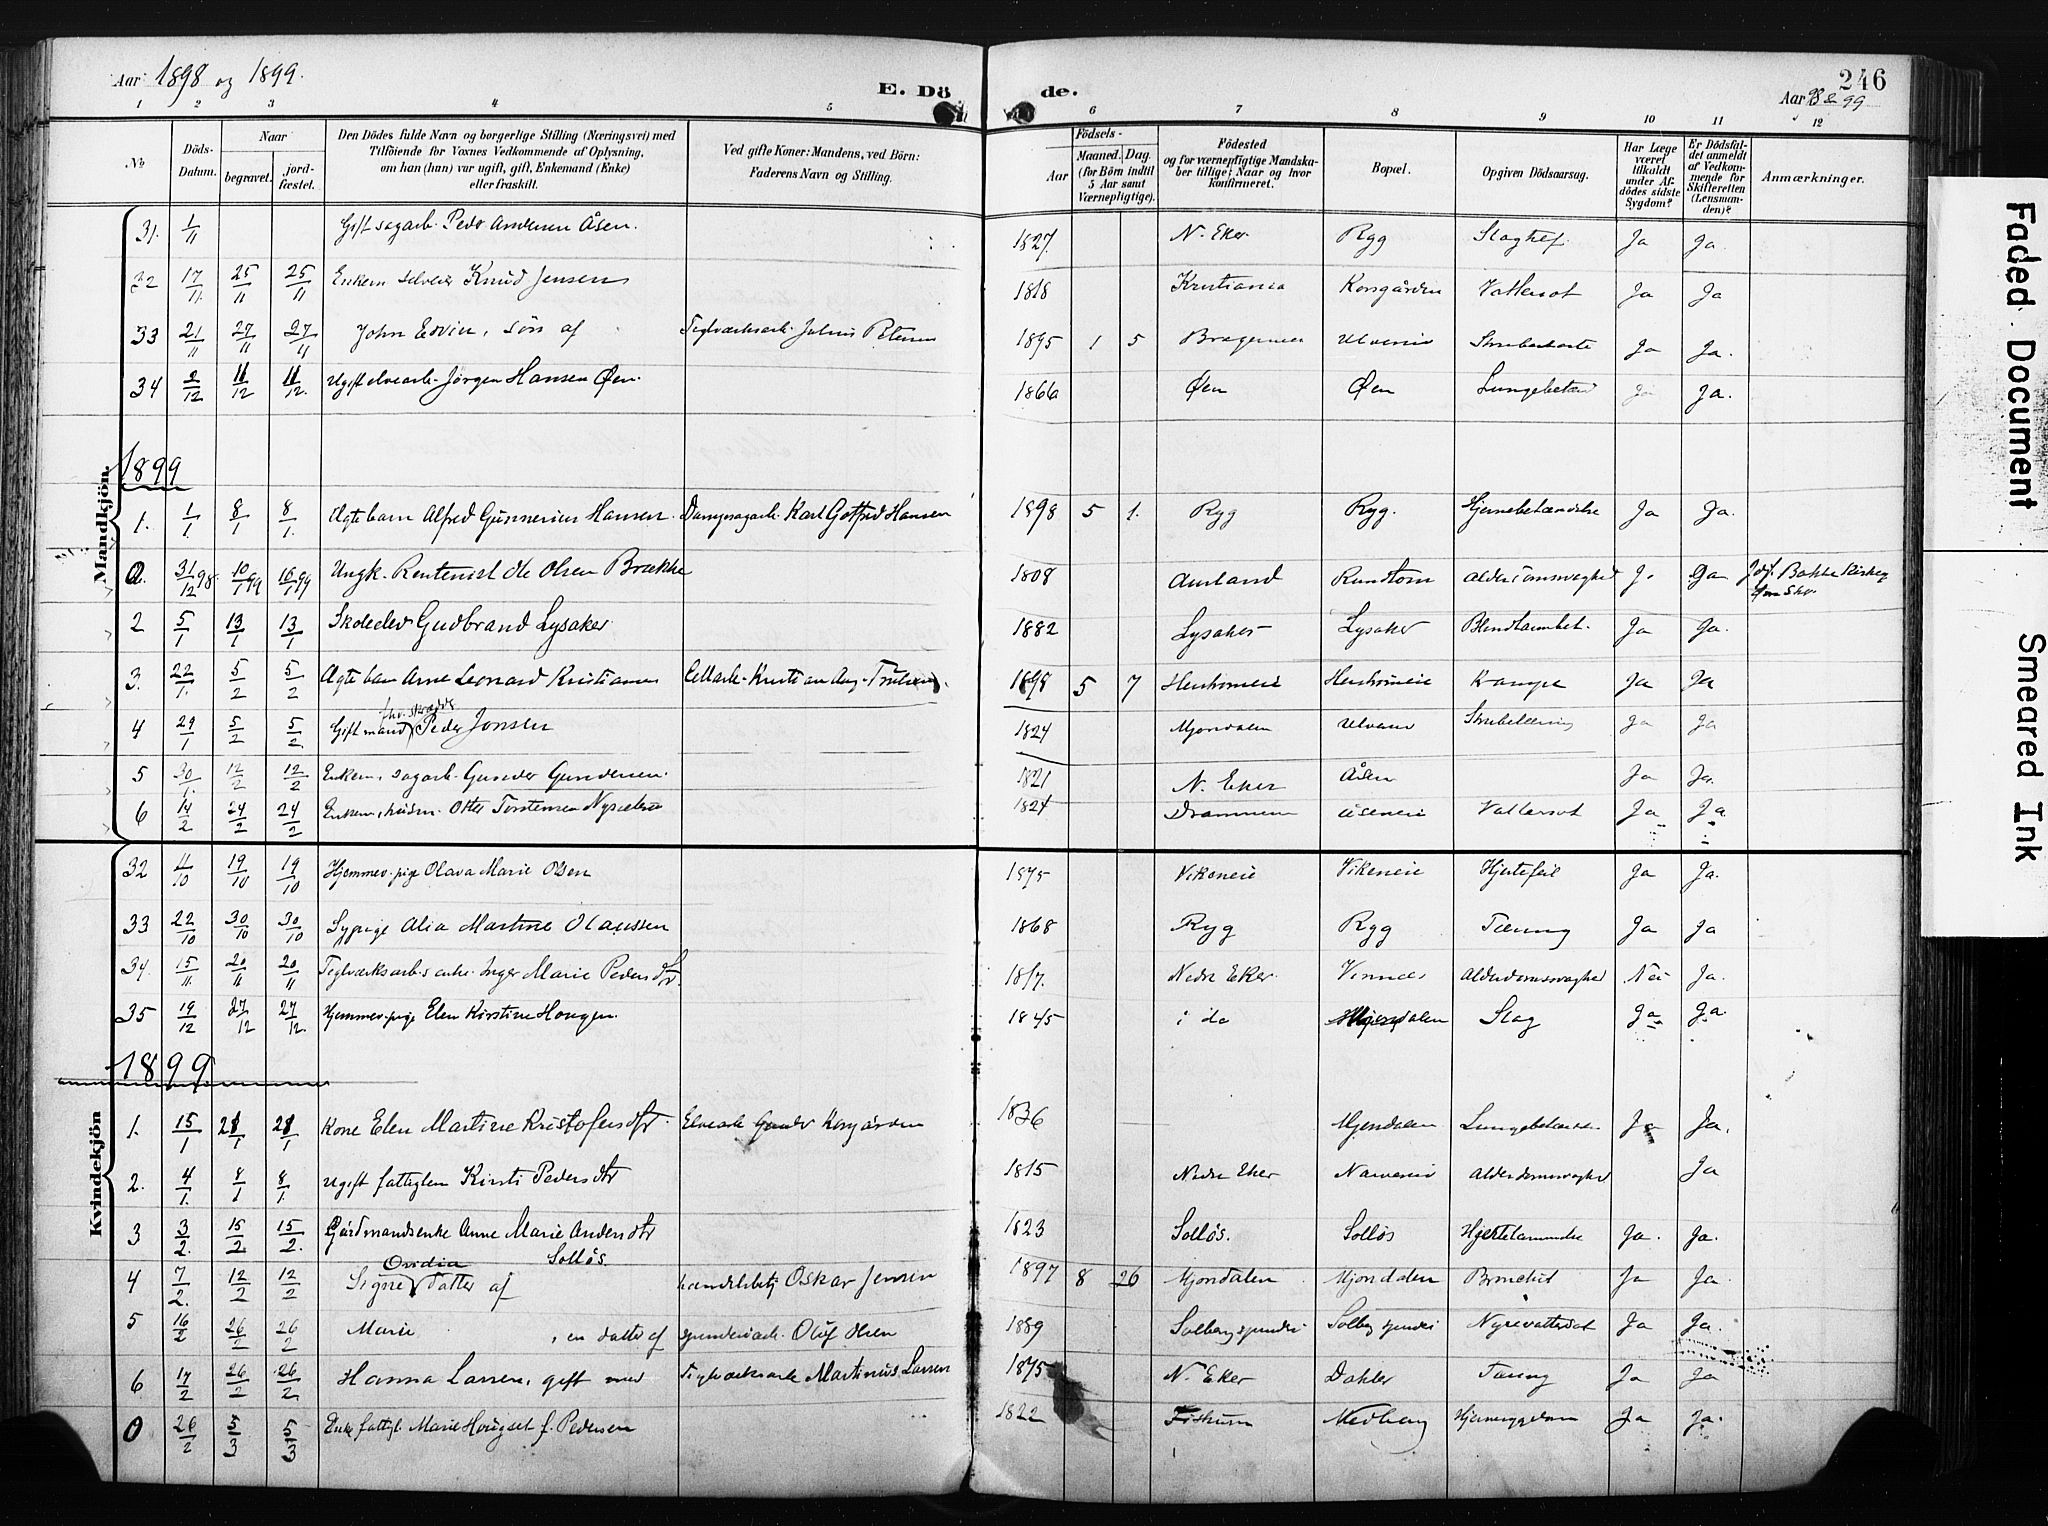 Aar 1898 og 1899.
E. Dö
de.
246
Aar 98 & 99
1 2 3 4 5 6 7 8 9 10 11 12
No
Döds-Datum.
Naar
begravet.
jord-fæstet.
Den Dödes fulde Navn og borgerlige Stilling (Næringsvei) med
Tilföiende for Voxnes Vedkommende af Oplysning,
om han (hun) var ugift, gift, Enkemand (Enke)
eller fraskilt.
Ved gifte Koner: Mandens, ved Börn:
Faderens Navn og Stilling.
Födsels-
Aar
Maaned. Dag
(for Börn indtil
5 Aar samt
Værnepligtige).
Födested
og for værnepligtige Mandska-
ber tillige: Naar og hvor
konfirmeret.
Bopæl.
Opgiven Dödsaarsag.
Har Læge
været
tilkaldt
under Af-
dödes sidste
Sygdom?
Er Dödsfal-
det anmeldt
af Vedkom-
mende for
Skifteretten
(Lensman-
den)?
Anmærkninger.
Mandkjön.
31. 1/11 Gift sagarb. Peder Andersen Åsen. 1827. N. Eker Rygg Ja Ja.
32 17/11 25/11 25/11 Enkem. Knud Jensen 1818 Kristiania Korsgården Vattersot Ja Ja
33 21/11 27/11 27/11 John Edvin, sön af Teglværksarb. Julius Petersen 1895 1 5 Bragernes Ja Ja.
34 2/12 11/12 11/12. Ugift elvearb. Jørgen Hansen Øen. 1866 Øen Øen Lungebetænd Ja Ja.
1899
1. 1/1. 8/1 8/1. Ægte barn Alfred Gunnerius Hansen. Dampsagarb. Karl Gotfred Hansen 1898 5 1. Ryg Ryg. Hjernebetændelse Ja Ja.
0. 31/12 98. 10/1 99 10/1 99 Ungk. Rentenist Ole Olsen Brække 1808 Aurland Rundtom Alderdomssvaghed Ja Ja
2 5/1 13/1 13/1 Skoleelev Gudbrand Lysaker 1882 Lysaker Lysaker Blindtarmbet. Ja Ja.
3. 22/1. 5/2 5/2 Ægte barn Arne Leonard Kristiansen 1898 5 7 Krampe Ja Ja
4 29/1 5/2 5/2. Gift mand Peder Jonsen 1824 Mjøndalen Ja Ja
5 30/1. 12/2 12/2 Enkem. sagarb. Gunder Gundersen. 1821 N. Eker Åsen Ja Ja.
6 14/2 24/2 24/2 Enkem. Otter Torstensen 1824 Drammen Åseneie Vattersot Ja Ja
32 11/10 19/10 19/10 Hjemmev. pige Olava Marie Olsen 1875 Vikeneie Vikeneie Hjertefeil Ja Ja.
33 22/10 30/10 30/10 Sypige Alia Martine Olaussen 1868 Ryg Rygg Tæring Ja Ja
34. 15/11. 20/11 20/11 Teglværksarb.s enke Inger Marie Pedersdtr. 1817. Nedre Eker. Vinnes Alderdomssvaghed Nei Ja.
35 19/12 27/12 27/12. Hjemmev. pige Elen Kirstine Hougen. 1845 i do Mjøndalen Slag Ja Ja
1899
Kvindekjön
1. 15/1 28/1 28/1 Kone Elen Martine Kristofersdtr. Elvearb. Gunder Korsgården 1836 Mjøndalen Lungebetænd. Ja Ja.
2. 4/1. 8/1 8/1. Ugift fattiglem Kirsti Pedersdtr 1815 Nedre Eker Narveseie Alderdomssvaghed Ja
3 3/2. 15/2. 15/2. Gårdmandsenke Anne Marie Andersdtr 1823 Solløs. Solløs Ja. Ja.
Solløs
Ovidia
4 7/2. 12/2 12/2 Signe datter af handelsbetj Oskar Jensen 1897 8 26 Mjøndalen Mjøndalen Bronchit Ja Ja.
5 16/2 26/2 26/2 Marie, en datter af spinderiarb. Oluf Olsen 1889 Solberg spinderi Solberg spinderi Nyrevattersot Ja Ja.
6 17/2 26/2 26/2. Hanna Larsen, gift med Teglværksarb Martinus Larsen 1875 N. Eker Dahler Tæring Ja Ja
0 26/2 5/3 5/3 Enke fattigl. Marie Hougset f. Pedersen 1822 Fiskum Vedberg Ja Ja.
Faded Document
Smeared Ink